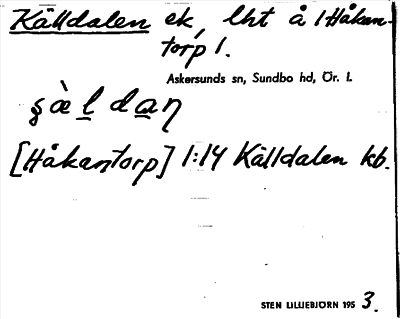 Källdalen ek, lht å 1 Håkan-
torp 1.
Askersunds sn, Sundbo hd, Ör. l.
[Håkantorp] 1:14 Källdalen kb.
STEN LILLIEBJÖRN 195 3.